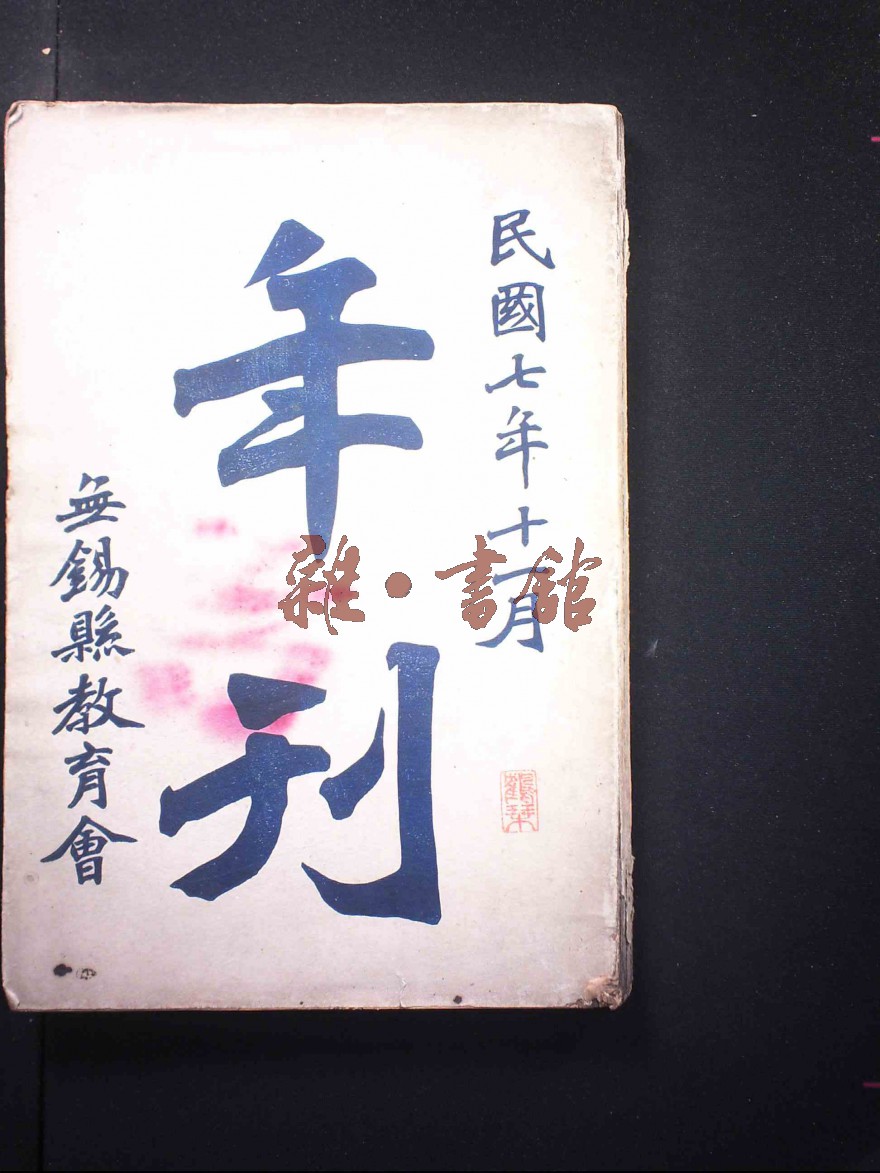 民國七年十一月
年刊
無錫縣教育會
雜•書館